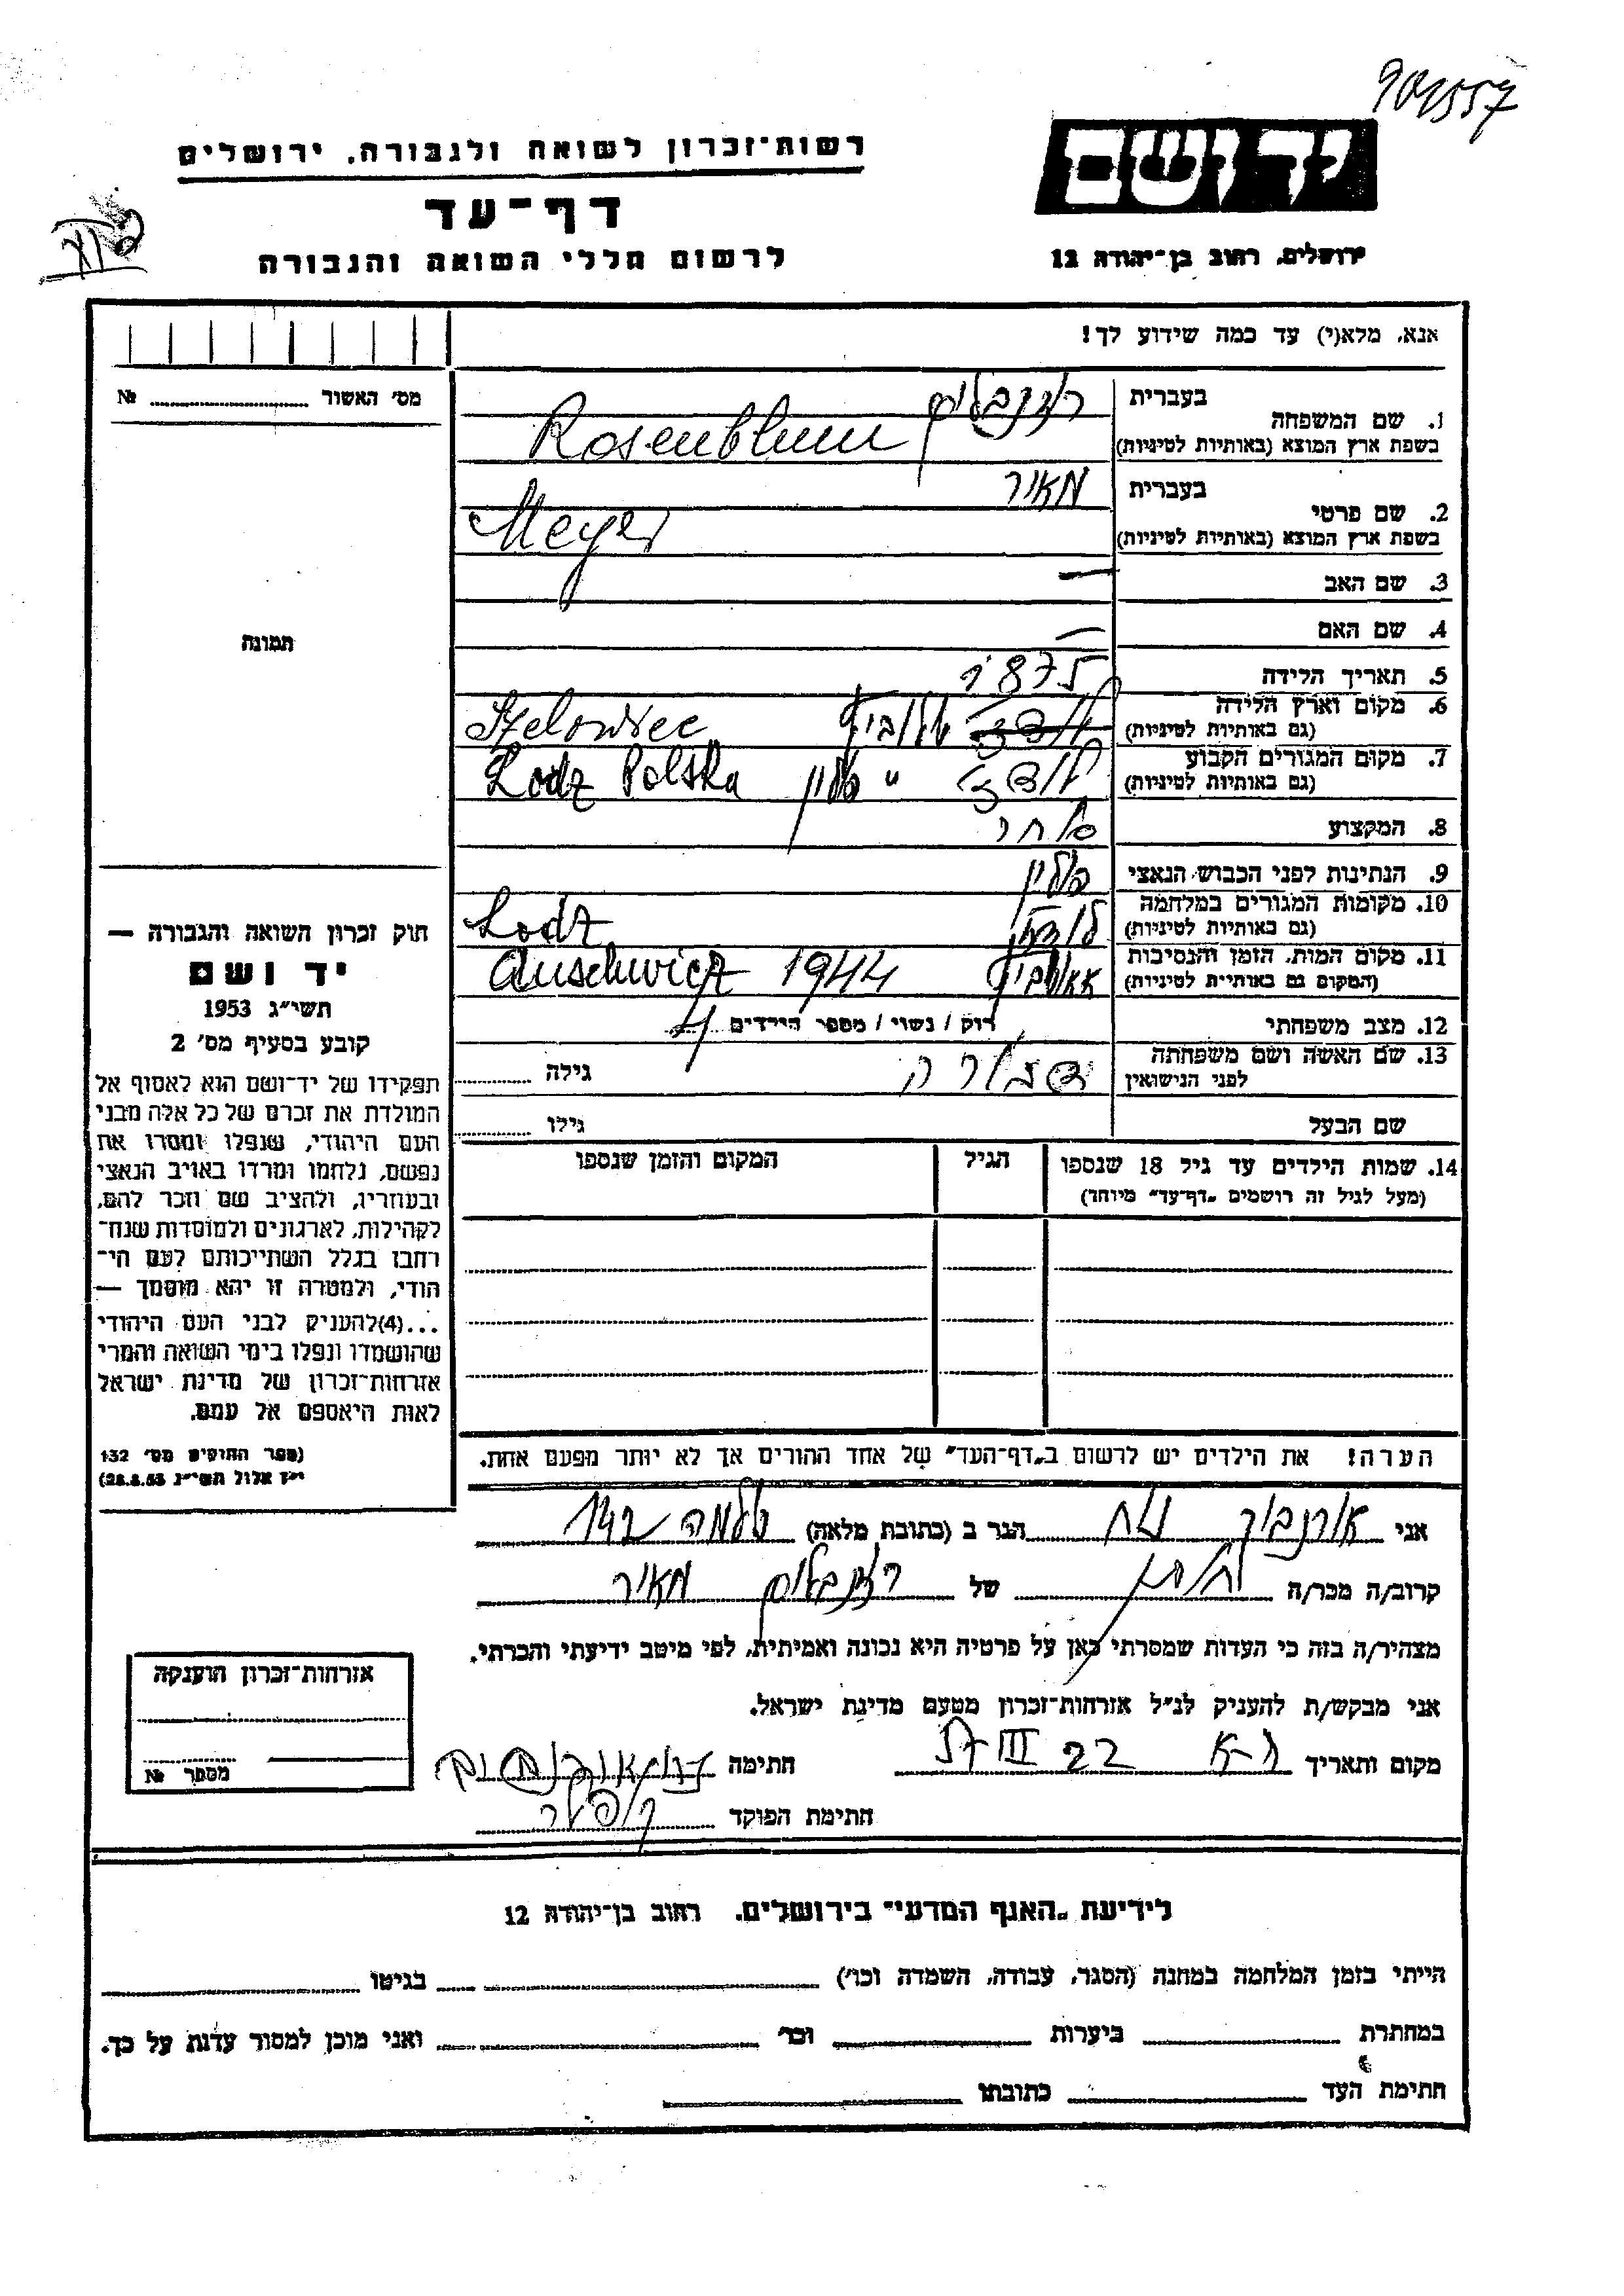 רשות־זכרון לשואה ולגבורה, ירושלים
דף־עד
לרשום חללי השואה והגבורה
יד ושם
ירושלים, רחוב בן־יהודה 12
אנא, מלא(י) עד כמה שידוע לך!
מס׳ האשור № 
תמונה
בעברית רוזנבלום
1. שם המשפחה
בשפת ארץ המוצא (באותיות לטיניות) Rosenblum
בעברית מאיר
2. שם פרטי
בשפת ארץ המוצא (באותיות לטיניות) Meyer
3. שם האב —
4. שם האם —
5. תאריך הלידה 1875
6. מקום וארץ הלידה
(גם באותיות לטיניות)
7. מקום המגורים הקבוע לודז׳ " פולין Lodz Polska
(גם באותיות לטיניות)
8. המקצוע סוחר
9. הנתינות לפני הכבוש הנאצי פולין
10. מקומות המגורים במלחמה Lodz
(גם באותיות לטיניות)
11. מקום המות, הזמן והנסיבות Auschwicz 1944
(המקום גם באותיית לטיניות)
12. מצב משפחתי רוק / נשוי / מספר הילדים 4
13. שם האשה ושם משפחתה
לפני הנישואין גילה
שם הבעל גילו
14. שמות הילדים עד גיל 18 שנספו הגיל המקום והזמן שנספו
(מעל לגיל זה רושמים „דף־עד״ מיוחד)
הערה! את הילדים יש לרשום ב„דף־העד״ של אחד ההורים אך לא יותר מפעם אחת.
חוק זכרון השואה והגבורה —
יד ושם
תשי״ג 1953
קובע בסעיף מס׳ 2
תפקידו של יד־ושם הוא לאסוף אל
המולדת את זכרם של כל אלה מבני
העם היהודי, שנפלו ומסרו את
נפשם, נלחמו ומרדו באויב הנאצי
ובעוזריו, ולהציב שם וזכר להם,
לקהילות, לארגונים ולמוסדות שנח־
רחבו בגלל השתייכותם לעם הי־
הודי, ולמטרה זו יהא מוסמך —
...(4)להעניק לבני העם היהודי
שהושמדו ונפלו בימי השואה והמרי
אזרחות־זכרון של מדינת ישראל
לאות היאספם אל עמם.
(ספר החוקים מס׳ 132
י״ז אלול תשי״ג 28.8.53)
אני הגר ב (כתובת מלאה) שלמה 142
קרוב/ה מכר/ה חתן של רוזנבלום מאיר
מצהיר/ה בזה כי העדות שמסרתי כאן על פרטיה היא נכונה ואמיתית, לפי מיטב ידיעתי והכרתי.
אני מבקש/ת להעניק לנ״ל אזרחות־זכרון מטעם מדינת ישראל.
מקום ותאריך ת-א 22 III 57 חתימה
חתימת הפוקד
אזרחות־זכרון הוענקה
מספר №
לידיעת „האגף המדעי״ בירושלים. רחוב בן־יהודה 12
הייתי בזמן המלחמה במחנה (הסגר, עבודה, השמדה וכו׳) בגיטו
במחתרת ביערות וכו׳ ואני מוכן למסור עדות על כך.
חתימת העד כתובתו